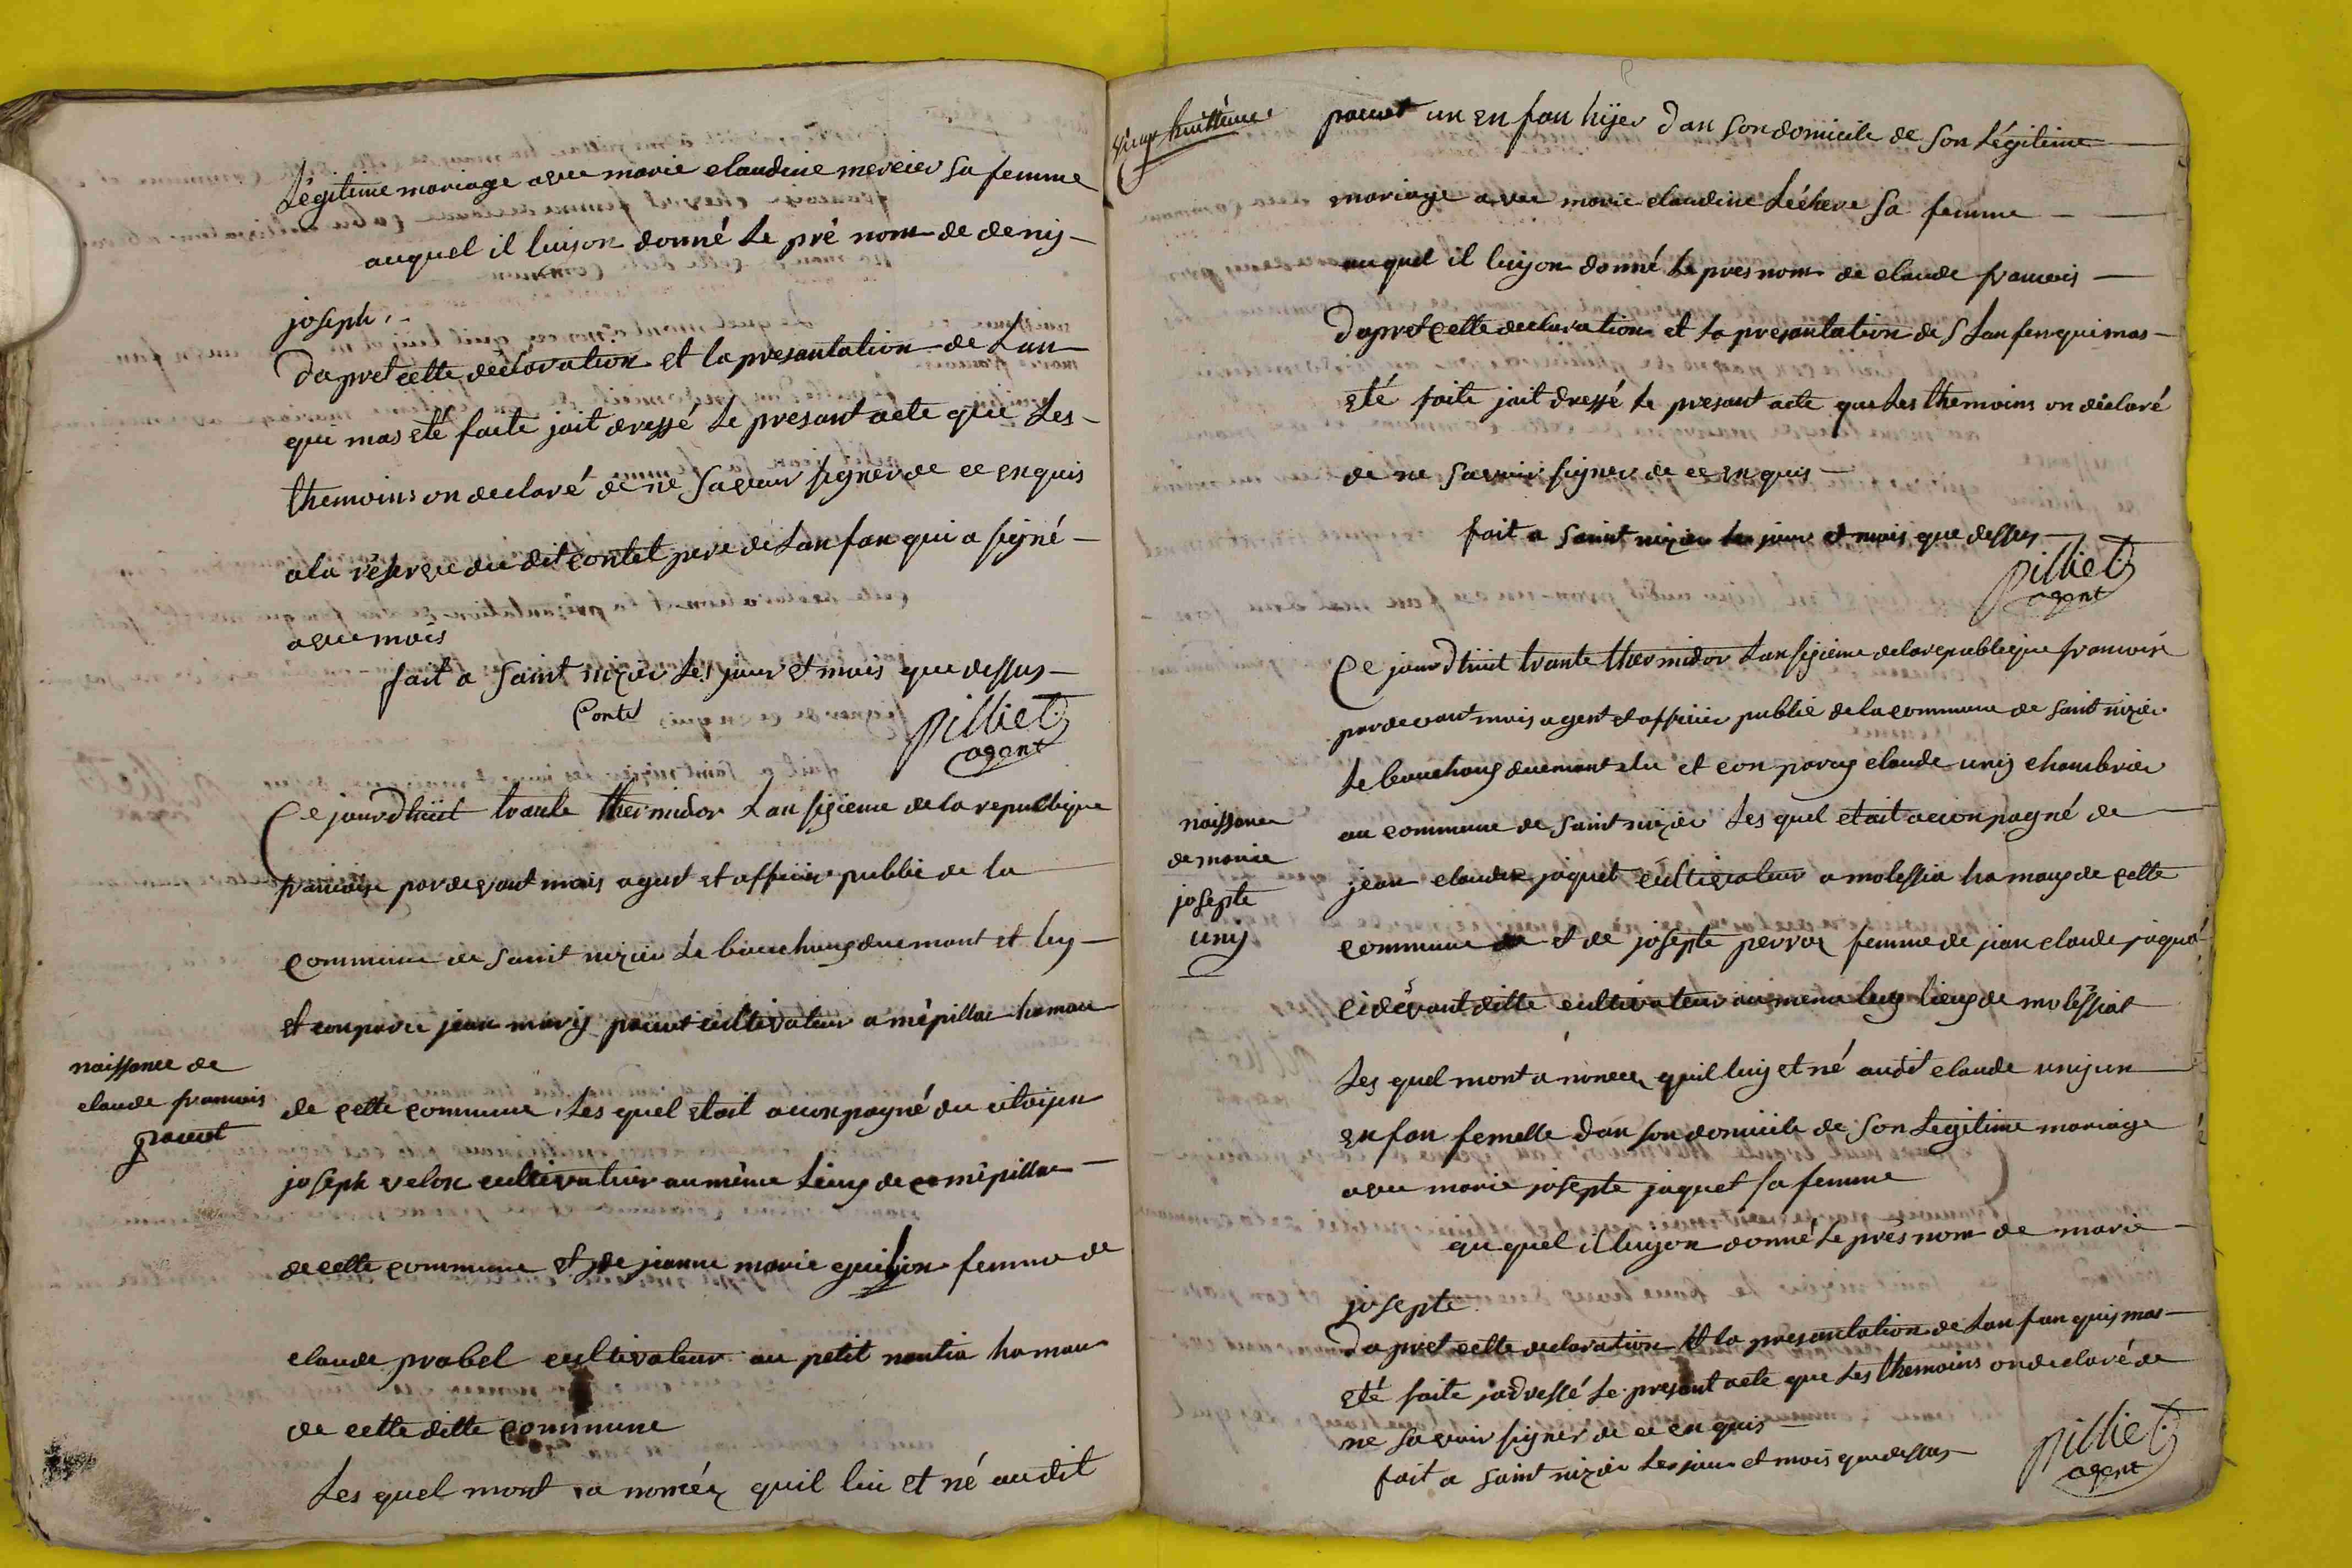 Légitime mariage avec marie claudine mercier sa femme
auquel il luÿ on donné le pré nom de denÿ
joseph
Dapret cette déclaration et la presantation de Lan
qui mas eté faite jait dressé le presant acte que les
themoins on declaré de ne savoir signer de ce enquis
a la réserve du dit contet pere de Lanfan qui a signé
avec mois
fait a saint nizier les jour et mois que dessus
Contet
pilliet
agent
Ce jourdhuit trante thermidor Lan sizieme de la republique
francoise pardevant mois agent et officier public de la
commune de saint nizier le bouchoux duement et luÿ
et conparu jean marÿ pauut cultivateur a mépillac hamau
naissance de
claude francois
pauut
de cette commune, les quel etoit aconpagné du citoÿen
joseph velon cultivateur au même lieuy de mépillac
de cette commune et de jeanne marie guiljon femme de
claude prabel cultivateur au petit nantia hamau
de cette ditte commune
Les quel mont a noncéz quil lui et né audit
vingt huittieme
pauut un enfan hÿer dan son domicile de son Légitime
mariage avec marie claudine Léchere sa femme
auquel il luÿ on donné le presnom de claude francois
Dapret cette declaration et la presantation de Lanfan qui mas
eté faite jait dressé le presant acte que les themoins on déclaré
de ne savoir signer de ce enquis
fait a saint nizier les jour et mois que dessus
pilliet
agent
Ce jourdhuit trante thermidor Lan sizieme de la republique francoise
pardevant mois agent et officier public de la commune de saint nizier
le bouchoux duement elu et conparuy claude unÿ chambrier
naissance
de marie
josepte
unÿ
au commune de saint nizier les quel etait aconpagné de
jean claude jaquet cultivateur a molessia hamauy de cette
commune et de josepte perraz femme de jean claude jaquet
cidevant ditte cultivateur au meme luy lieuy de molessiat
Les quel mont a noncez quil luÿ et né audit claude unÿ un
enfan femelle dan son domicile de son Legitime mariage
avec marie josepte jaquet sa femme
au quel il luÿ on donné le présnom de marie
josepte
Dapret cette declaration et la presantation de Lanfan quis mas
eté faite jai dressé le presant acte que les themoins on declaré de
ne savoir signer de ce enquis
fait a saint nizier les jour et mois que dessus
pilliet
agent